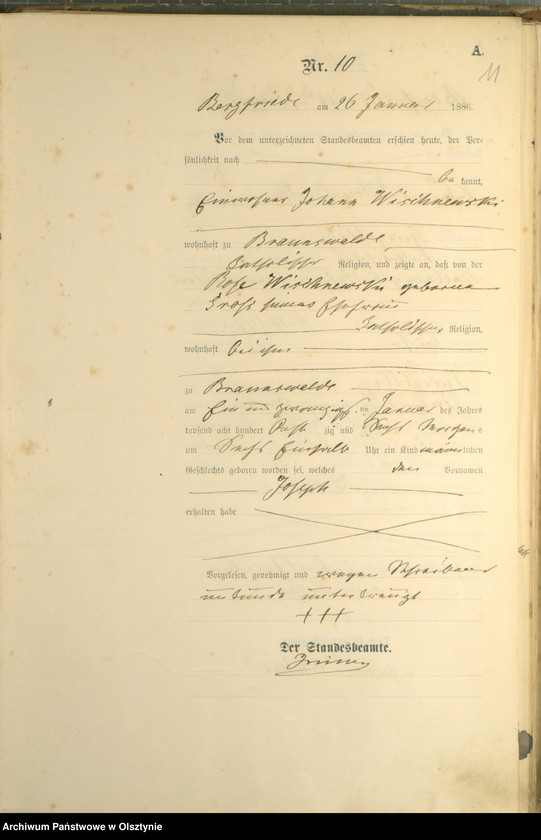 A.
11
Nr. 10
Bergfriede am 26 Januar 1886.
Vor dem unterzeichneten Standesbeamten erschien heute, der Per-
sönlichkeit nach
be kannt,
Einwohner Johann Wischnewski
wohnhaft zu Braunswalde
katholischer Religion, und zeigte an, daß von der
Rosa Wischnewski geborene
seines Ehefrau
katholischer Religion,
wohnhaft bei ihm
zu Braunswalde
am Ein und zwanzigsten Januar des Jahres
tausend acht hundert acht zig und Sechs Morgens
um Sechs Einhalb Uhr ein Kind männlichen
Geschlechts geboren worden sei, welches den Vornamen
Joseph
erhalten habe
Vorgelesen, genehmigt und wegen Schreibens
unkunde unterkreuzt
+++
Der Standesbeamte.
Archiwum Państwowe w Olsztynie